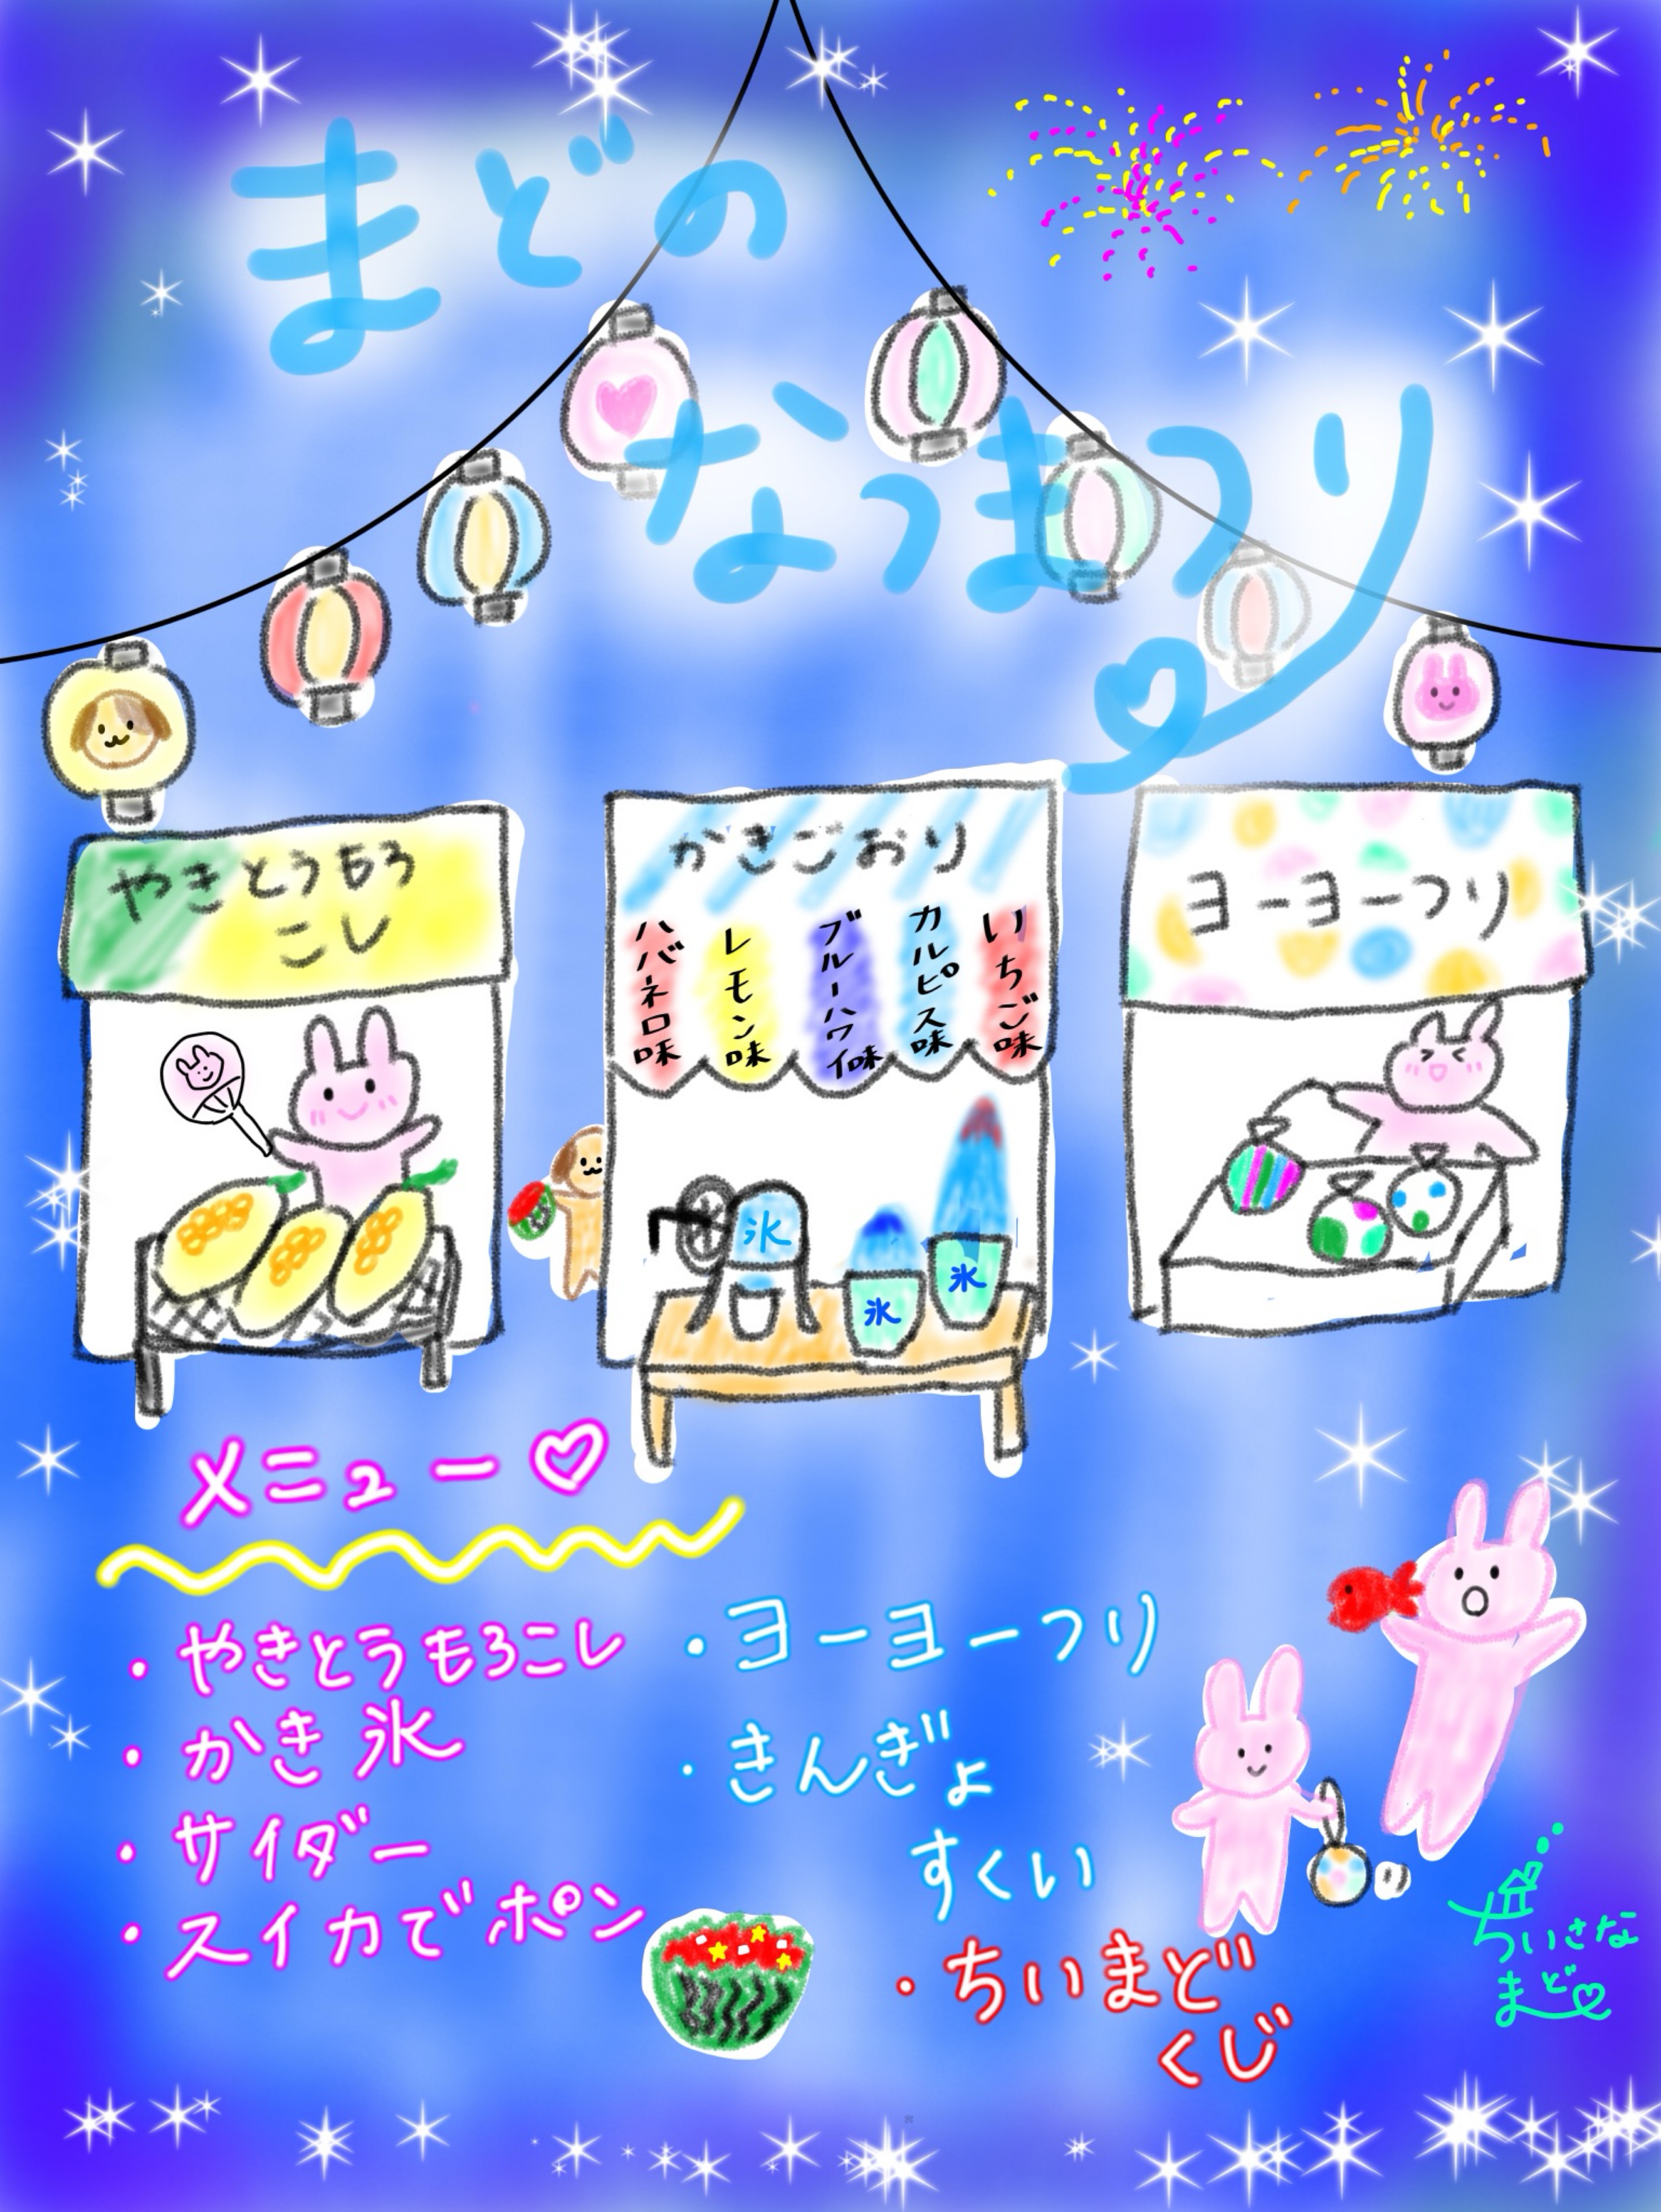 まどの
なつまつり
やきとうもろ
こし
かきごおり
ハバネロ味
レモン味
ブルーハワイ味
カルピス味
いちご味
ヨーヨーつり
氷
氷
氷
メニュー♡
・やきとうもろこし
・かき氷
・サイダー
・スイカでポン
・ヨーヨーつり
・きんぎょ
すくい
・ちいまど
くじ
ちいさな
まど♡